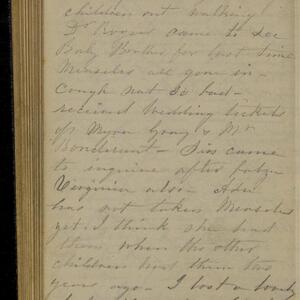 children out walking
Dr Rogers came to see
Baby Brother for last time
Measles are gone in -
Cough not so bad -
received Wedding tickets
of Myra Gong & Mr
Bondurant - Sis came
to inquire after baby
Virginia also. Ader
has not taken Measles
yet. I think she had
them when the other
children had them two
years ago - I lost a lovely